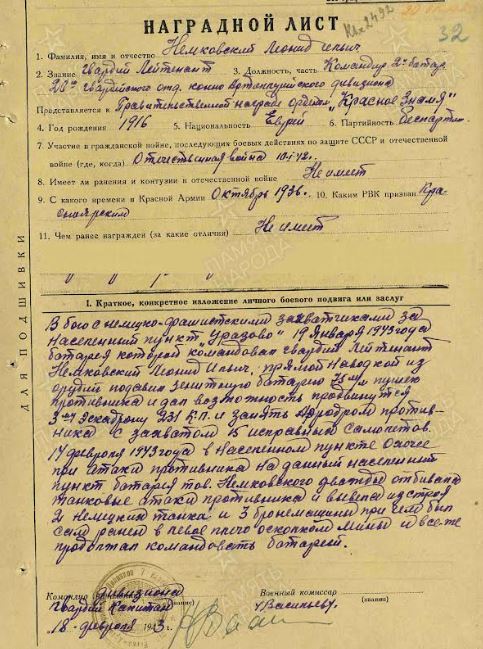 НАГРАДНОЙ ЛИСТ
32
1. Фамилия, имя и отчество Немковский Леонид Ильич
2. Звание Гвардии Лейтенант 3. Должность, часть Командир 2й батар.
гвардейского отд. конно артиллерийского дивизиона
Представляется к Правительственной награде орден „Красное Знамя"
4. Год рождения 1916 5. Национальность Еврей 6. Партийность Беспартии.
7. Участие в гражданской войне, последующих боевых действиях по защите СССР и отечественной
войне (где, когда) Отечественная война
8. Имеет ли ранения и контузии в отечественной войне Не имеет
9. С какого времени в Красной Армии Октябрь 1936. 10. Каким РВК призван Кра-
сноярским
11. Чем ранее награжден (за какие отличия) Не имеет
ДЛЯ ПОДШИВКИ
I. Краткое, конкретное изложение личного боевого подвига или заслуг
В бою с немецко-фашистскими захватчиками за
населенный пункт „Уразово" 19 января 1943 года
батарея которой командовал гвардии Лейтенант
Немковский Леонид Ильич прямой наводкой из
орудий подавил зенитную батарею 75 мм пушек
противника и дал возможность продвинутся
3му Эскадрону 231 К.П. и занять Аэродром против-
ника с захватом 15 исправных самолетов.
14 февраля 1943 года в населенном пункте Охочее
при атаки противника на данный населенный
пункт батарея тов. Немковского дважды отбивала
танковые атаки противника и вывела из строя
2 немецких танка и 3 бронемашины при чем был
сам ранен в левое плечо осколком мины и все-же
продолжал командовать батареей.
Командир дивизиона Военный комиссар
Гвардии Капитан (звание) /Васильев/. (звание)
18 февраля 1943 г.
ПАМЯТЬ НАРОДА